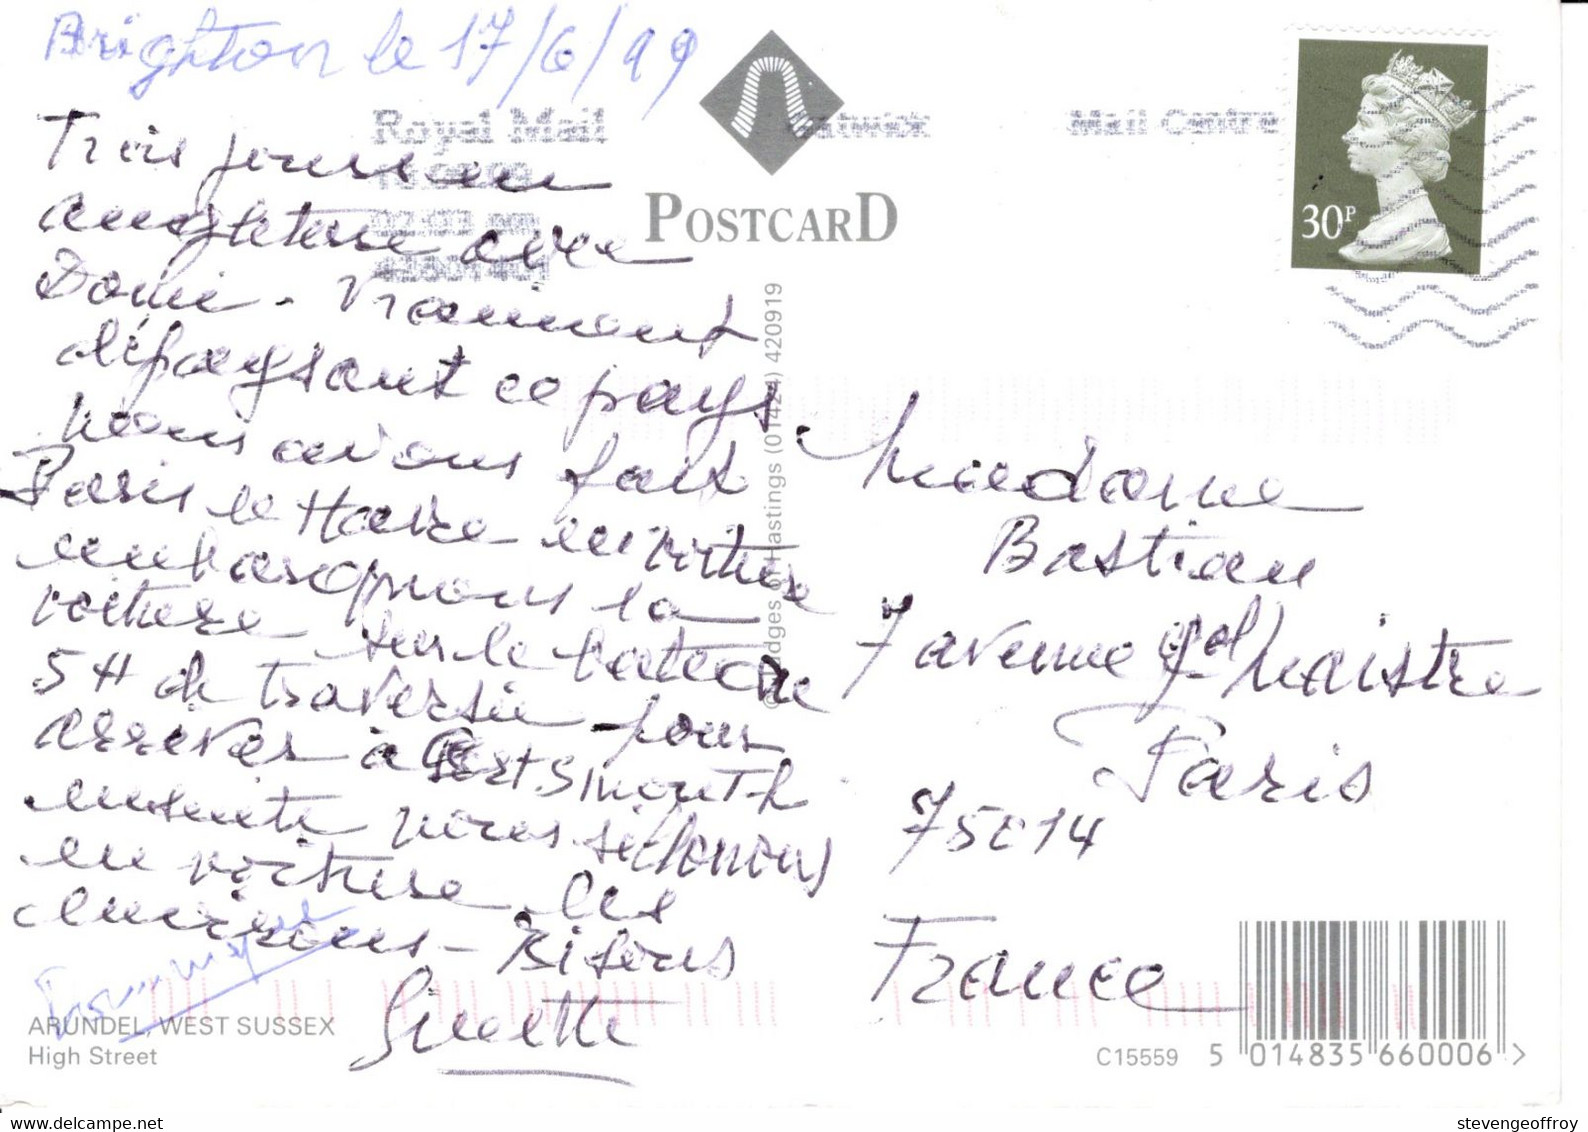 Brighton le 17/6/99
Trois jours en
angleterre avec
Domi - Vraiment
dépaysant ce pays.
nous avons fait
Paris le Havre en voiture
embarquons la
voiture sur le bateau
5 H de traversée pour
arriver à Portsmouth
ensuite nous sillonnons
en voiture les
environs - Bisous
Ginette
Dominique
Royal Mail
Gatwick
Mail Centre
POSTCARD
30P
© Judges of Hastings (01424) 420919
Madame
Bastian
7 avenue Gal Maistre
Paris
75014
France
ARUNDEL, WEST SUSSEX
High Street
C15559
5 014835 660006 >
stevengeoffroy